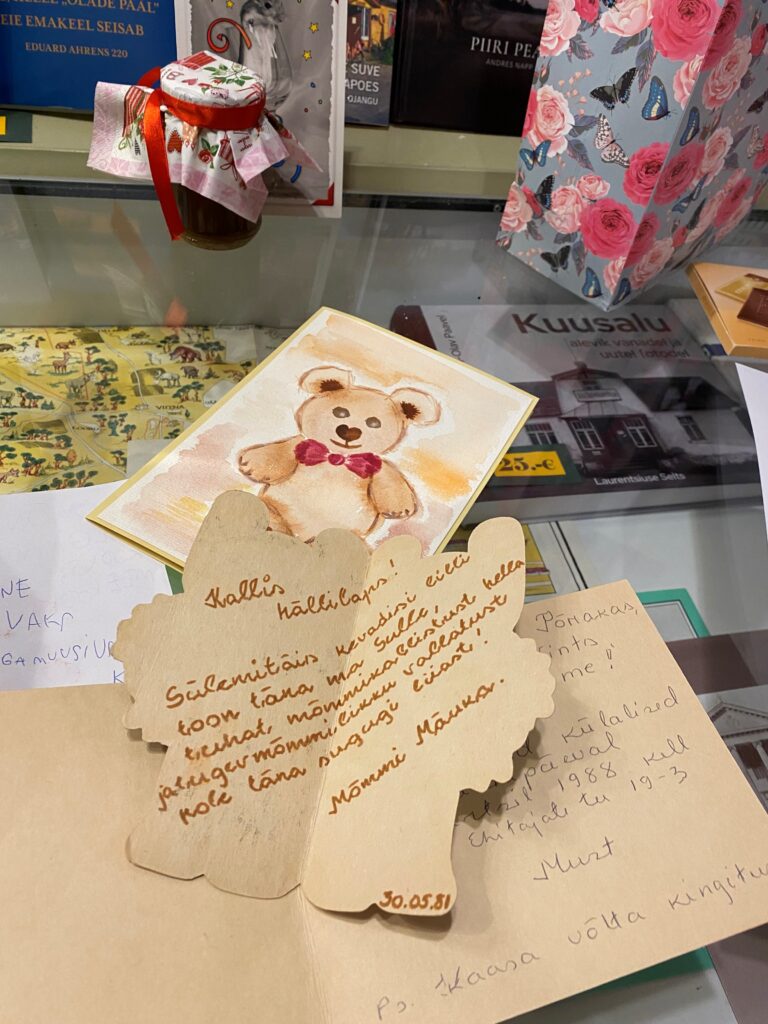 "OLADE PAAL"
EIE EMAKEEL SEISAB
EDUARD AHRENS 220
SUVE
APOES
DJANGU
PIIRI PEA
ANDRES NAPP
Olav Paanvel
Kuusalu
alevik vanadel ja
uutel fotodel
25.-€
Laurentsiuse Selts
NE
VAKS
GAMUUSIU
K
Kallis
hällilaps!
Sülemitäis kevadisi lilli
toon täna ma Sulle,
truhat, mõmmikallistust hella
ja tugev mõmmilikku vallatust
pole täna sugugi liiast!
Mõmmi Mäuka.
30.05.81
Põnakas,
ints
me!
külalised
päeval
1988 kell
Ehitajate tee 19-3
Must
Ps. Kaasa võtta kingitus